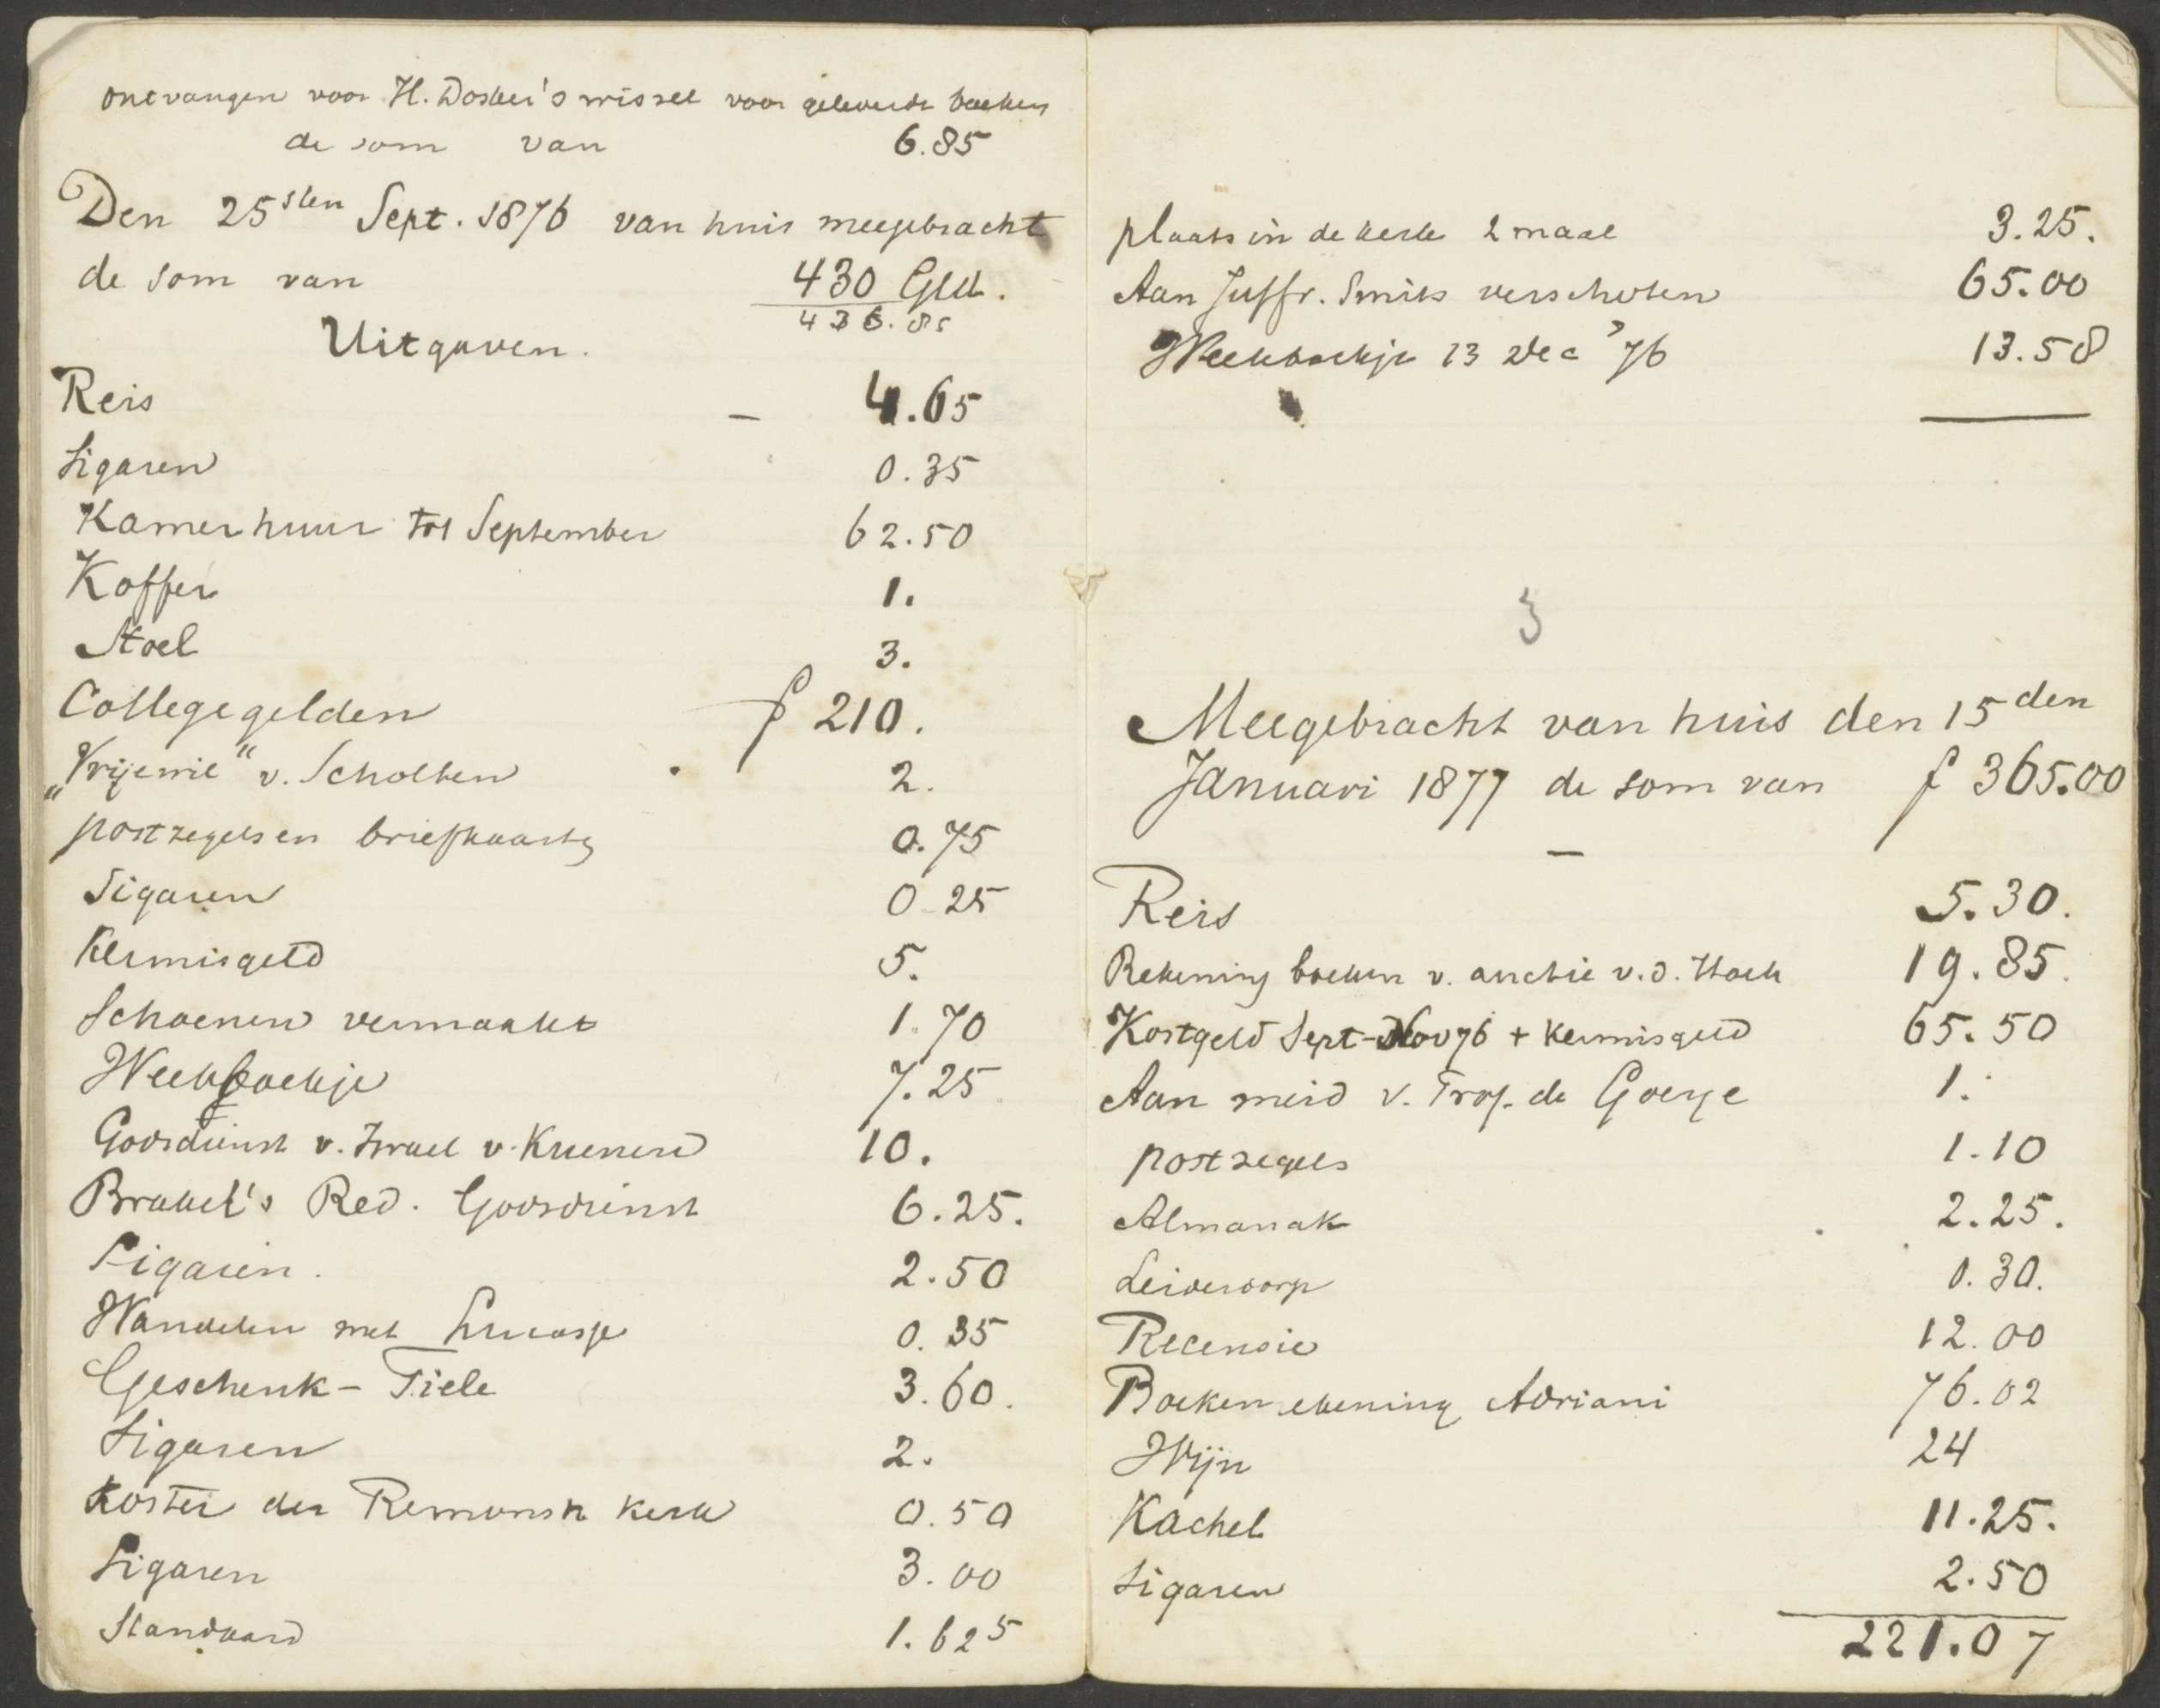 ontvangen voor H. Dosker's wissel voor geleverde boeken
de som van 6.85
Den 25sten Sept. 1876 van huis meegebracht
de som van 430 Gld.
436.85
Uitgaven.
Reis – 4.65
Sigaren 0.35
Kamerhuur tot September 62.50
Koffer 1.
Stoel 3.
Collegegelden f 210.
„Vrije wil“ v. Scholten 2.
postzegels en briefkaarten 0.75
Sigaren 0.25
Kermisgeld 5.
Schoenen vermaakt 1.70
Weekboekje 7.25
Godsdienst v. Israel v. Kuenen 10.
Brakel's Red. Godsdienst 6.25.
Sigaren. 2.50
Wandelen met 0.35
Geschenk – Tiele 3.60.
Sigaren 2.
Koster der Remonstr kerk 0.50
Sigaren 3.00
Standaard 1.625
plaats in de kerk 2 maal 3.25.
Aan Juffr. Smits verschoten 65.00
Weekboekje 13 Dec '76 13.58
3
Meegebracht van huis den 15den
Januari 1877 de som van f 365.00
–
Reis 5.30.
Rekening boeken v. auctie v. d. Hoek 19.85.
Kostgeld Sept–Nov 76 + kermisgeld 65.50
Aan meid v. Prof. de Goeje 1.
postzegels 1.10
Almanak 2.25.
Leiderdorp 0.30.
Recensie 12.00
Boekenrekening Adriani 76.02
Wijn 24
Kachel 11.25.
Sigaren 2.50
221.07